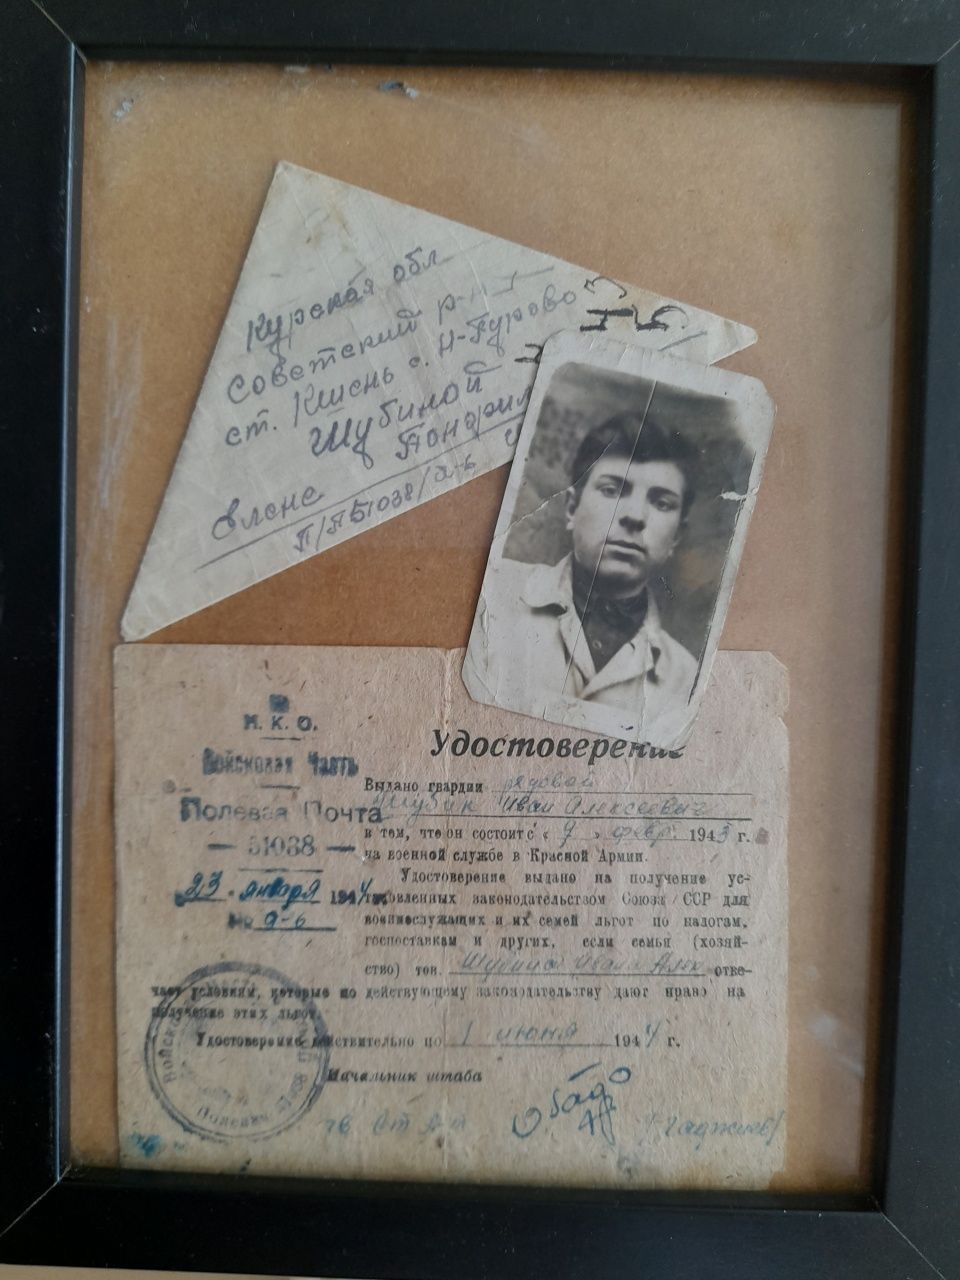 Курская обл
Советский р-н
ст. Кшень с. Н-Гурово
Шубиной
Елене
П/П 51038/а-б
Н. К. О.
Войсковая Часть
Полевая Почта
— 51038 —
23 января 1944
№ а-б
Удостоверение
Выдано гвардии рядовой
Шубин Иван Алексеевич
в том, что он состоит с « 9 » февр. 1943 г.
на военной службе в Красной Армии.
Удостоверение выдано на получение ус-
тановленных законодательством Союза ССР для
военнослужащих и их семей льгот по налогам,
госпоставкам и других, если семья (хозяй-
ство) тов. Шубина Ивана Алек отве-
чает условиям, которые по действующему законодательству дают право на
получение этих льгот.
Удостоверение действительно по 1 июня 1944 г.
Начальник штаба
гв ст л-т (Гаджиев)